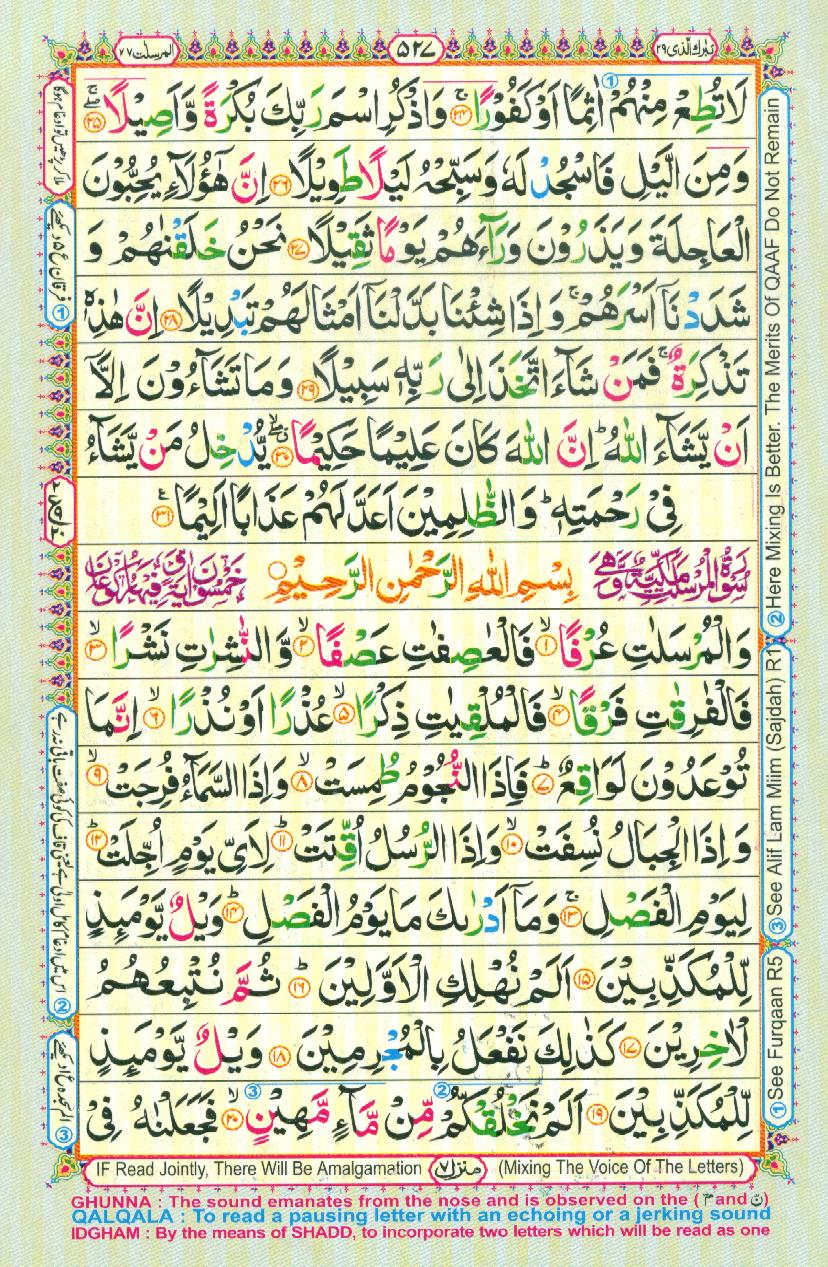 المرسلت ٧٧
٥٢٧
تبرك الذی ٢٩
لَا تُطِعْ مِنْهُمْ اٰثِمًا اَوْ كَفُوْرًاۚ ۝٢٤ وَاذْكُرِ اسْمَ رَبِّكَ بُكْرَةً وَّاَصِيْلًاۖۚ ۝٢٥
وَمِنَ الَّيْلِ فَاسْجُدْ لَهٗ وَسَبِّحْهُ لَيْلًا طَوِيْلًا ۝٢٦ اِنَّ هٰٓؤُلَآءِ يُحِبُّوْنَ
الْعَاجِلَةَ وَيَذَرُوْنَ وَرَآءَهُمْ يَوْمًا ثَقِيْلًا ۝٢٧ نَحْنُ خَلَقْنٰهُمْ وَ
شَدَدْنَآ اَسْرَهُمْۚ وَاِذَا شِئْنَا بَدَّلْنَآ اَمْثَالَهُمْ تَبْدِيْلًا ۝٢٨ اِنَّ هٰذِهٖ
تَذْكِرَةٌۚ فَمَنْ شَآءَ اتَّخَذَ اِلٰى رَبِّهٖ سَبِيْلًا ۝٢٩ وَمَا تَشَآءُوْنَ اِلَّاۤ
اَنْ يَّشَآءَ اللّٰهُؕ اِنَّ اللّٰهَ كَانَ عَلِيْمًا حَكِيْمًاۗۖ ۝٣٠ يُّدْخِلُ مَنْ يَّشَآءُ
فِيْ رَحْمَتِهٖؕ وَالظّٰلِمِيْنَ اَعَدَّ لَهُمْ عَذَابًا اَلِيْمًا ۝٣١
سُوْرَةُ الْمُرْسَلٰتِ مَكِّيَّةٌ وَّهِيَ بِسْمِ اللّٰهِ الرَّحْمٰنِ الرَّحِيْمِ خَمْسُوْنَ اٰيَةً وَّفِيْهَا رُكُوْعَانِ
وَالْمُرْسَلٰتِ عُرْفًاۙ ۝١ فَالْعٰصِفٰتِ عَصْفًاۙ ۝٢ وَّالنّٰشِرٰتِ نَشْرًاۙ ۝٣
فَالْفٰرِقٰتِ فَرْقًاۙ ۝٤ فَالْمُلْقِيٰتِ ذِكْرًاۙ ۝٥ عُذْرًا اَوْ نُذْرًاۙ ۝٦ اِنَّمَا
تُوْعَدُوْنَ لَوَاقِعٌؕ ۝٧ فَاِذَا النُّجُوْمُ طُمِسَتْۙ ۝٨ وَاِذَا السَّمَآءُ فُرِجَتْۙ ۝٩
وَاِذَا الْجِبَالُ نُسِفَتْۙ ۝١٠ وَاِذَا الرُّسُلُ اُقِّتَتْؕ ۝١١ لِاَيِّ يَوْمٍ اُجِّلَتْؕ ۝١٢
لِيَوْمِ الْفَصْلِۚ ۝١٣ وَمَآ اَدْرٰىكَ مَا يَوْمُ الْفَصْلِؕ ۝١٤ وَيْلٌ يَّوْمَئِذٍ
لِّلْمُكَذِّبِيْنَ ۝١٥ اَلَمْ نُهْلِكِ الْاَوَّلِيْنَؕ ۝١٦ ثُمَّ نُتْبِعُهُمُ
الْاٰخِرِيْنَ ۝١٧ كَذٰلِكَ نَفْعَلُ بِالْمُجْرِمِيْنَ ۝١٨ وَيْلٌ يَّوْمَئِذٍ
لِّلْمُكَذِّبِيْنَ ۝١٩ اَلَمْ نَخْلُقْكُّمْ مِّنْ مَّآءٍ مَّهِيْنٍۙ ۝٢٠ فَجَعَلْنٰهُ فِيْ
① See Furqaan R5
② Here Mixing Is Better. The Merits Of QAAF Do Not Remain
③ See Alif Lam Miim (Sajdah) R1
IF Read Jointly, There Will Be Amalgamation
منزل ٧
(Mixing The Voice Of The Letters)
GHUNNA : The sound emanates from the nose and is observed on the ( م and ن )
QALQALA : To read a pausing letter with an echoing or a jerking sound
IDGHAM : By the means of SHADD, to incorporate two letters which will be read as one